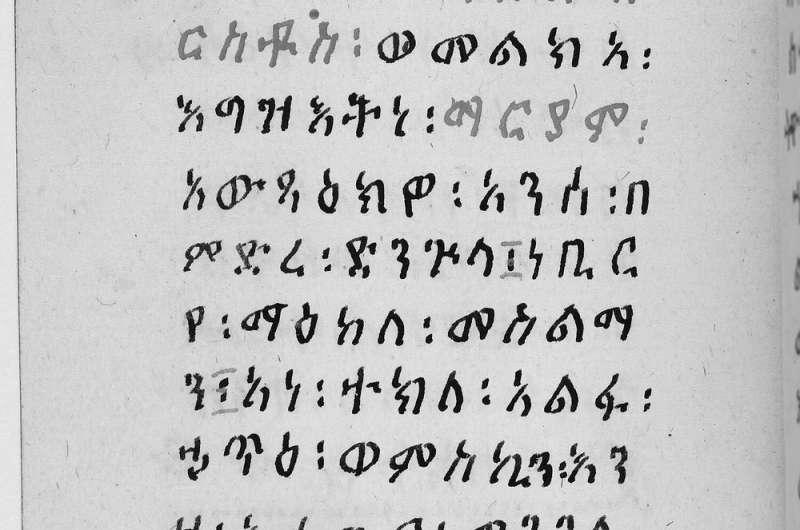 ርስቶስ፡ወመልክአ፡
እግዝእትነ፡ማርያም፡
አውዳዕክዎ፡አንሰ፡በ
ምድረ፡ድንጕላ፩ነቢር
የ፡ማዕከለ፡መስልማ
ን፩አነ፡ተክለ፡አልፋ፡
ኃጥዕ፡ወምስኪን፡አን